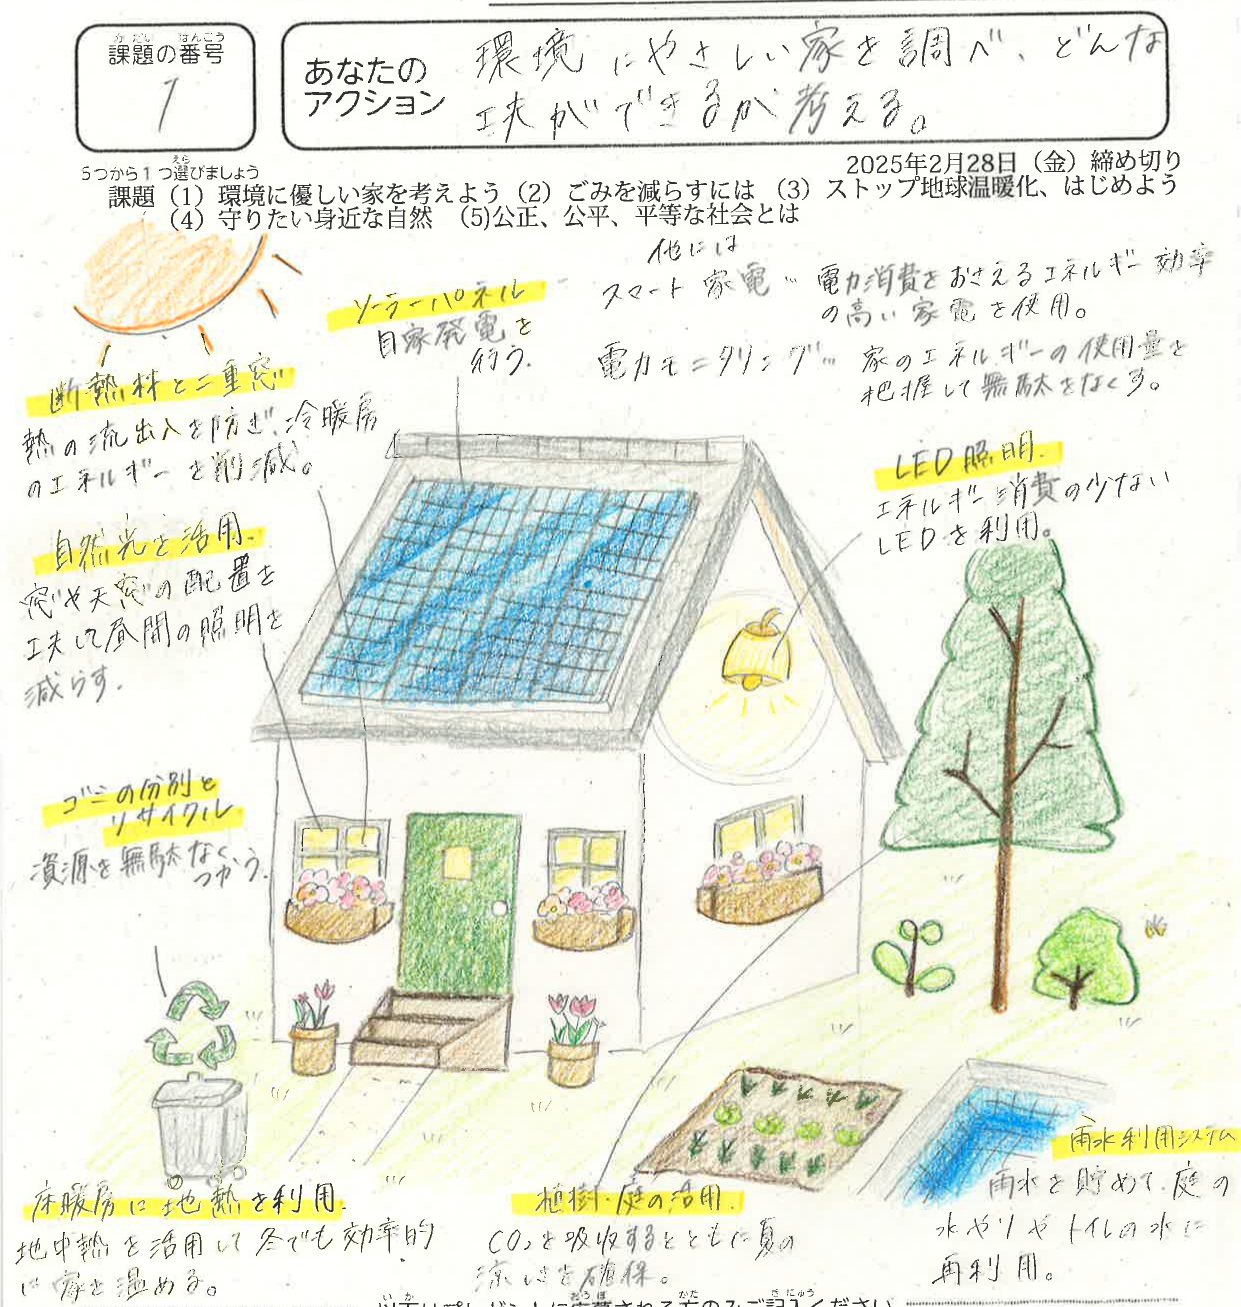 課題の番号
1
あなたの
アクション
環境にやさしい家を調べ、どんな
工夫ができるか考える。
5つから1つ選びましょう
2025年2月28日（金）締め切り
課題（1）環境に優しい家を考えよう（2）ごみを減らすには （3）ストップ地球温暖化、はじめよう
（4）守りたい身近な自然 (5)公正、公平、平等な社会とは
他には
スマート家電… 電力消費をおさえるエネルギー効率
の高い家電を使用。
電力モニタリング… 家のエネルギーの使用量を
把握して無駄をなくす。
ソーラーパネル
自家発電を
行う.
断熱材と二重窓
熱の流出入を防ぎ、冷暖房
のエネルギーを削減。
LED照明.
エネルギー消費の少ない
LEDを利用。
自然光を活用.
窓や天窓の配置を
工夫して昼間の照明を
減らす.
ゴミの分別と
リサイクル
資源を無駄なく
つかう.
雨水利用システム
雨水を貯めて.庭の
水やりやトイレの水に
再利用。
床暖房に地熱を利用.
地中熱を活用して冬でも効率的
に家を温める。
植樹・庭の活用.
CO₂を吸収するとともに夏の
涼しさを確保。